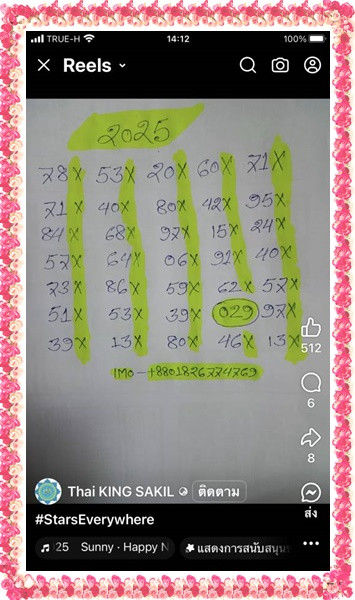 TRUE-H 14:12 100%
Reels
2025
78X 53X 20X 60X 71X
71X 40X 80X 42X 95X
84X 68X 97X 15X 24X
57X 64X 06X 91X 40X
73X 86X 59X 62X 57X
51X 53X 39X 029 97X
39X 13X 80X 46X 13X
IMO-+8801826774769
512
6
8
ส่ง
Thai KING SAKIL ติดตาม
#StarsEverywhere
25 Sunny · Happy N แสดงการสนับสนุน